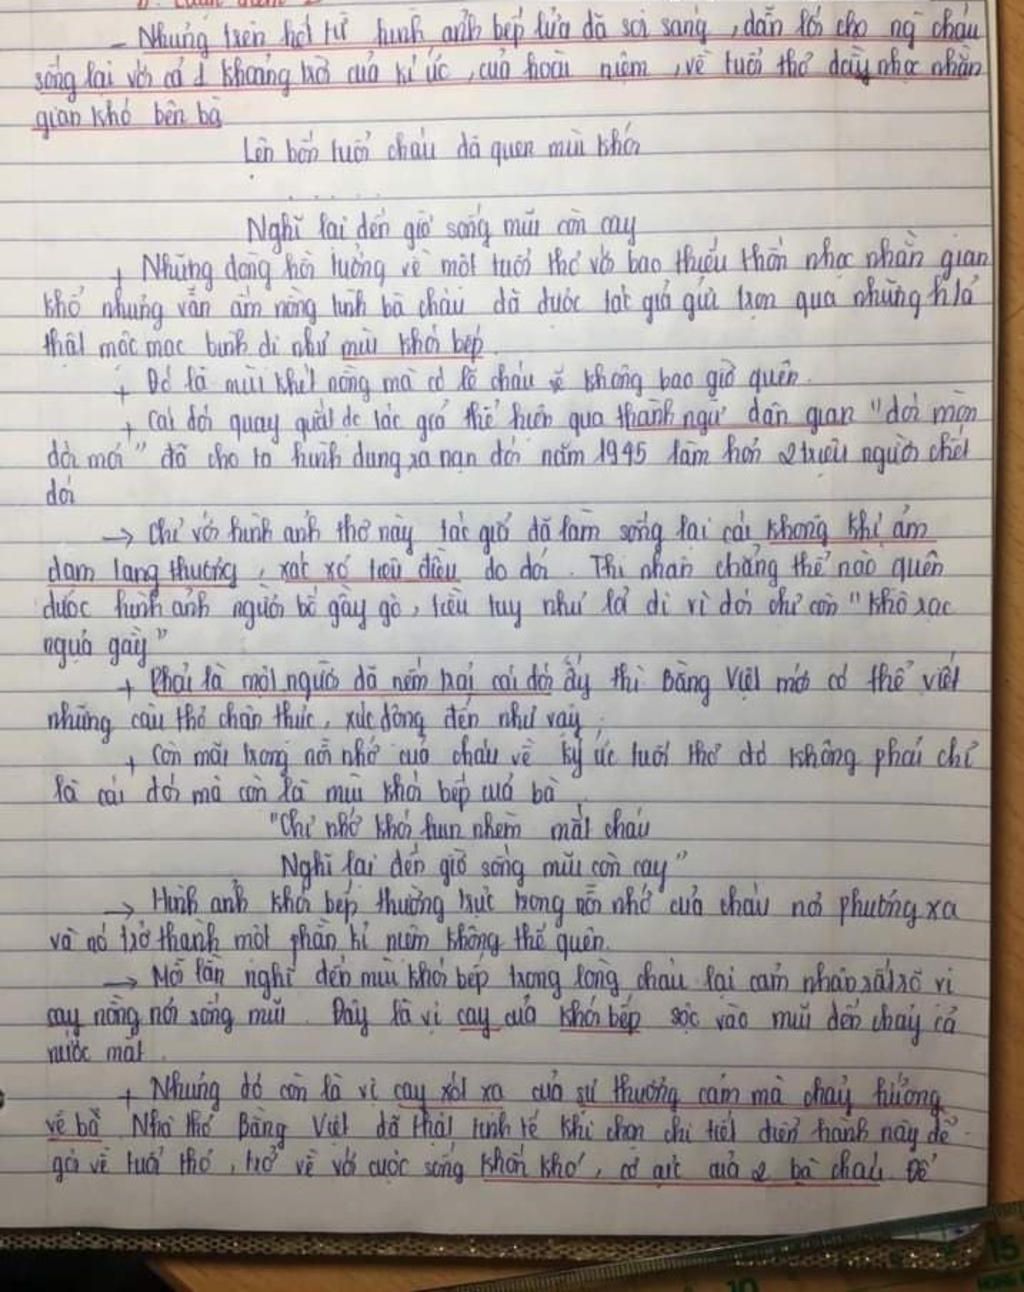 - Nhưng trên hết từ hình ảnh bếp lửa đã soi sáng, dẫn lối cho ng cháu
sống lại với cả 1 khoảng trời của kí ức, của hoài niệm, về tuổi thơ đầy nhọc nhằn
gian khó bên bà
Lên bốn tuổi cháu đã quen mùi khói
. . . . . .
Nghĩ lại đến giờ sống mũi còn cay
+ Những dòng hồi tưởng về một tuổi thơ với bao thiếu thốn nhọc nhằn gian
khổ nhưng vẫn ấm nồng tình bà cháu đã được tác giả gửi trọn qua những h/ả
thật mộc mạc bình dị như mùi khói bếp
+ Đó là mùi khét nồng mà có lẽ cháu sẽ không bao giờ quên.
+ Cái đói quay quắt đc tác giả thể hiện qua thành ngữ dân gian "đói mòn
đói mỏi" đã cho ta hình dung ra nạn đói năm 1945 làm hơn 2 triệu người chết
đói
→ Chỉ với hình ảnh thơ này tác giả đã làm sống lại cái không khí ảm
đạm tang thương, xơ xác tiêu điều do đói. Thi nhân chẳng thể nào quên
được hình ảnh người bố gầy gò, tiều tụy như lả đi vì đói chỉ còn "khô rạc
ngựa gầy"
+ Phải là một người đã nếm trải cái đói ấy thì Bằng Việt mới có thể viết
những câu thơ chân thực, xúc động đến như vậy.
+ Còn mãi trong nỗi nhớ của cháu về ký ức tuổi thơ đó không phải chỉ
là cái đói mà còn là mùi khói bếp của bà
"Chỉ nhớ khói hun nhèm mắt cháu
Nghĩ lại đến giờ sống mũi còn cay"
→ Hình ảnh khói bếp thường trực trong nỗi nhớ của cháu nơi phương xa
và nó trở thành một phần kỉ niệm không thể quên.
→ Mỗi lần nghĩ đến mùi khói bếp trong lòng cháu lại cảm nhận rất rõ vị
cay nồng nơi sống mũi. Đây là vị cay của khói bếp sộc vào mũi đến chảy cả
nước mắt.
+ Nhưng đó còn là vị cay xót xa của sự thương cảm mà cháu hướng
về bà. Nhà thơ Bằng Việt đã thật tinh tế khi chọn chi tiết điển hành này để
gợi về tuổi thơ, trở về với cuộc sống khốn khó, cơ cực của 2 bà cháu. Để